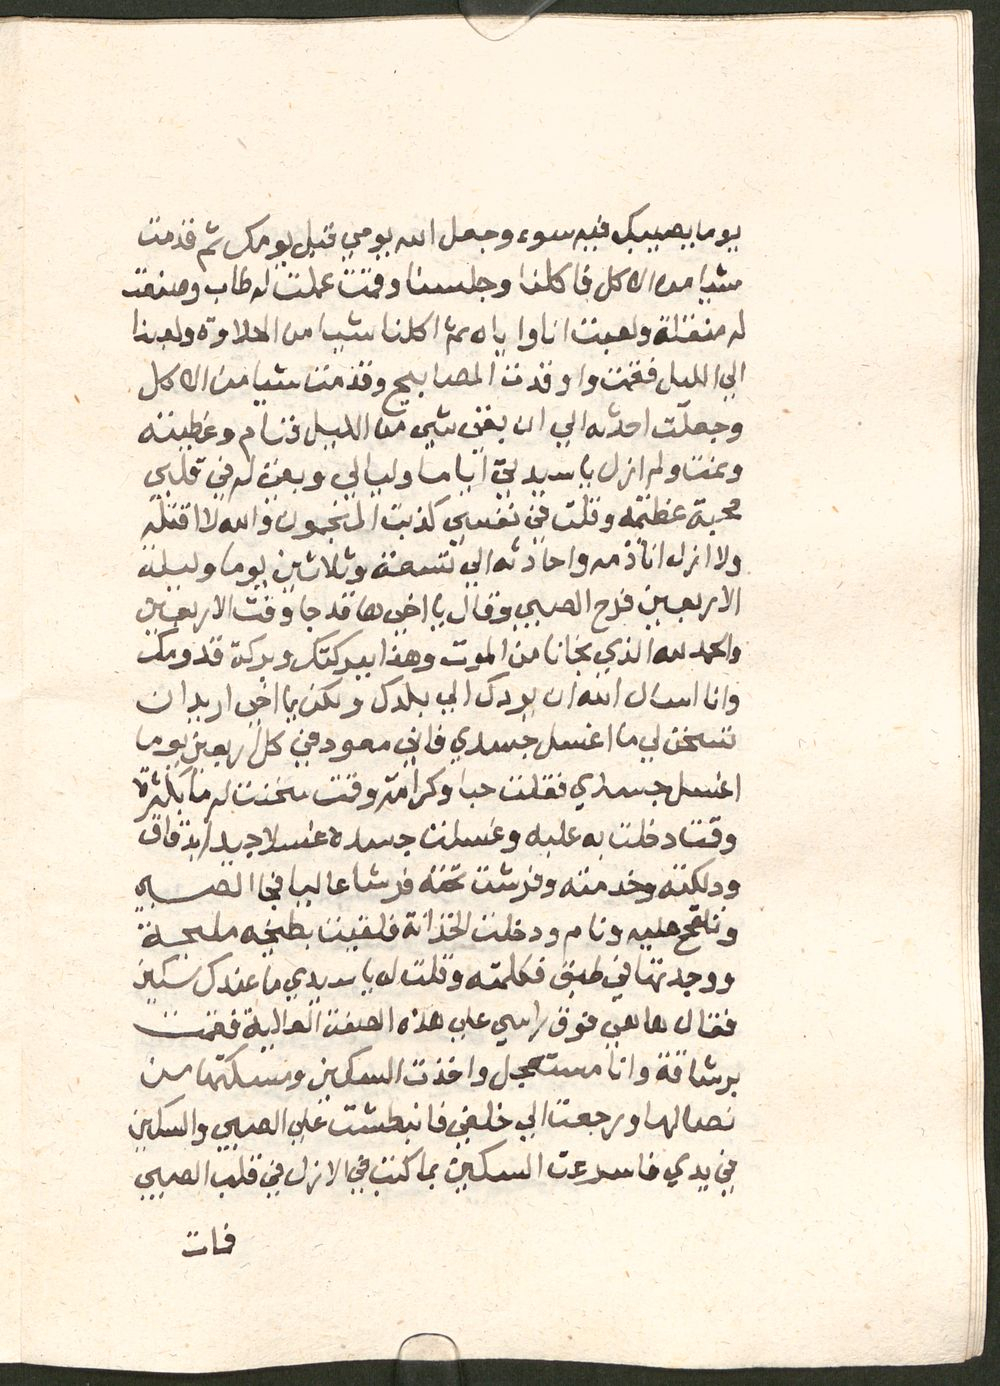 يوما يصيبك فيه سوء وجعل الله يومي قبل يومك ثم قدمت
شيا من الاكل فاكلنا وجلسنا وقمت عملت له طاب وصنعت
له منقلة ولعبت انا واياه ثم اكلنا شيا من الحلاوة ولعبنا
الي الليل فقمت واوقدت المصابيح وقدمت شيا من الاكل
وجعلت احدثه الي ان بقي شي من الليل فنام وغطيته
ونمت ولم ازل يا سيدتي اياما وليالي وبقي له في قلبي
محبة عظيمه وقلت في نفسي كذبت المنجمون والله لا اقتله
ولا ازل انادمه واحادثه الي تسعة وثلاثين يوما وليلة
الاربعين فرح الصبي وقال يا اخي ها قد جا وقت الاربعين
والحمد لله الذي نجانا من الموت وهذا ببركتك وبركة قدومك
وانا اسال الله ان يردك الي بلدك ولكن يا اخي اريد ان
تسخن لي ما اغسل جسدي فاني معود في كل اربعين يوما
اغسل جسدي فقلت حبا وكرامة وقمت سخنت له ما بكثرة
وقمت دخلت به عليه وغسلت جسده غسلا جيدا بدقاق
ودلكته وخدمته وفرشت تحته فرشا عاليا فجا الصبي
وتلقح عليه ونام ودخلت الخزانة فلقيت بطيخه مليحة
ووجدتها في طبق فكلمته وقلت له يا سيدي ما عندك سكين
فقال ها هي فوق راسي علي هذه الصفة العالية فقمت
برشاقة وانا مستعجل واخذت السكين ومسكتها من
نصالها ورجعت الي خلفي فانبطشت علي الصبي والسكين
في يدي فاسرعت السكين بما كتب في الازل في قلب الصبي
فمات